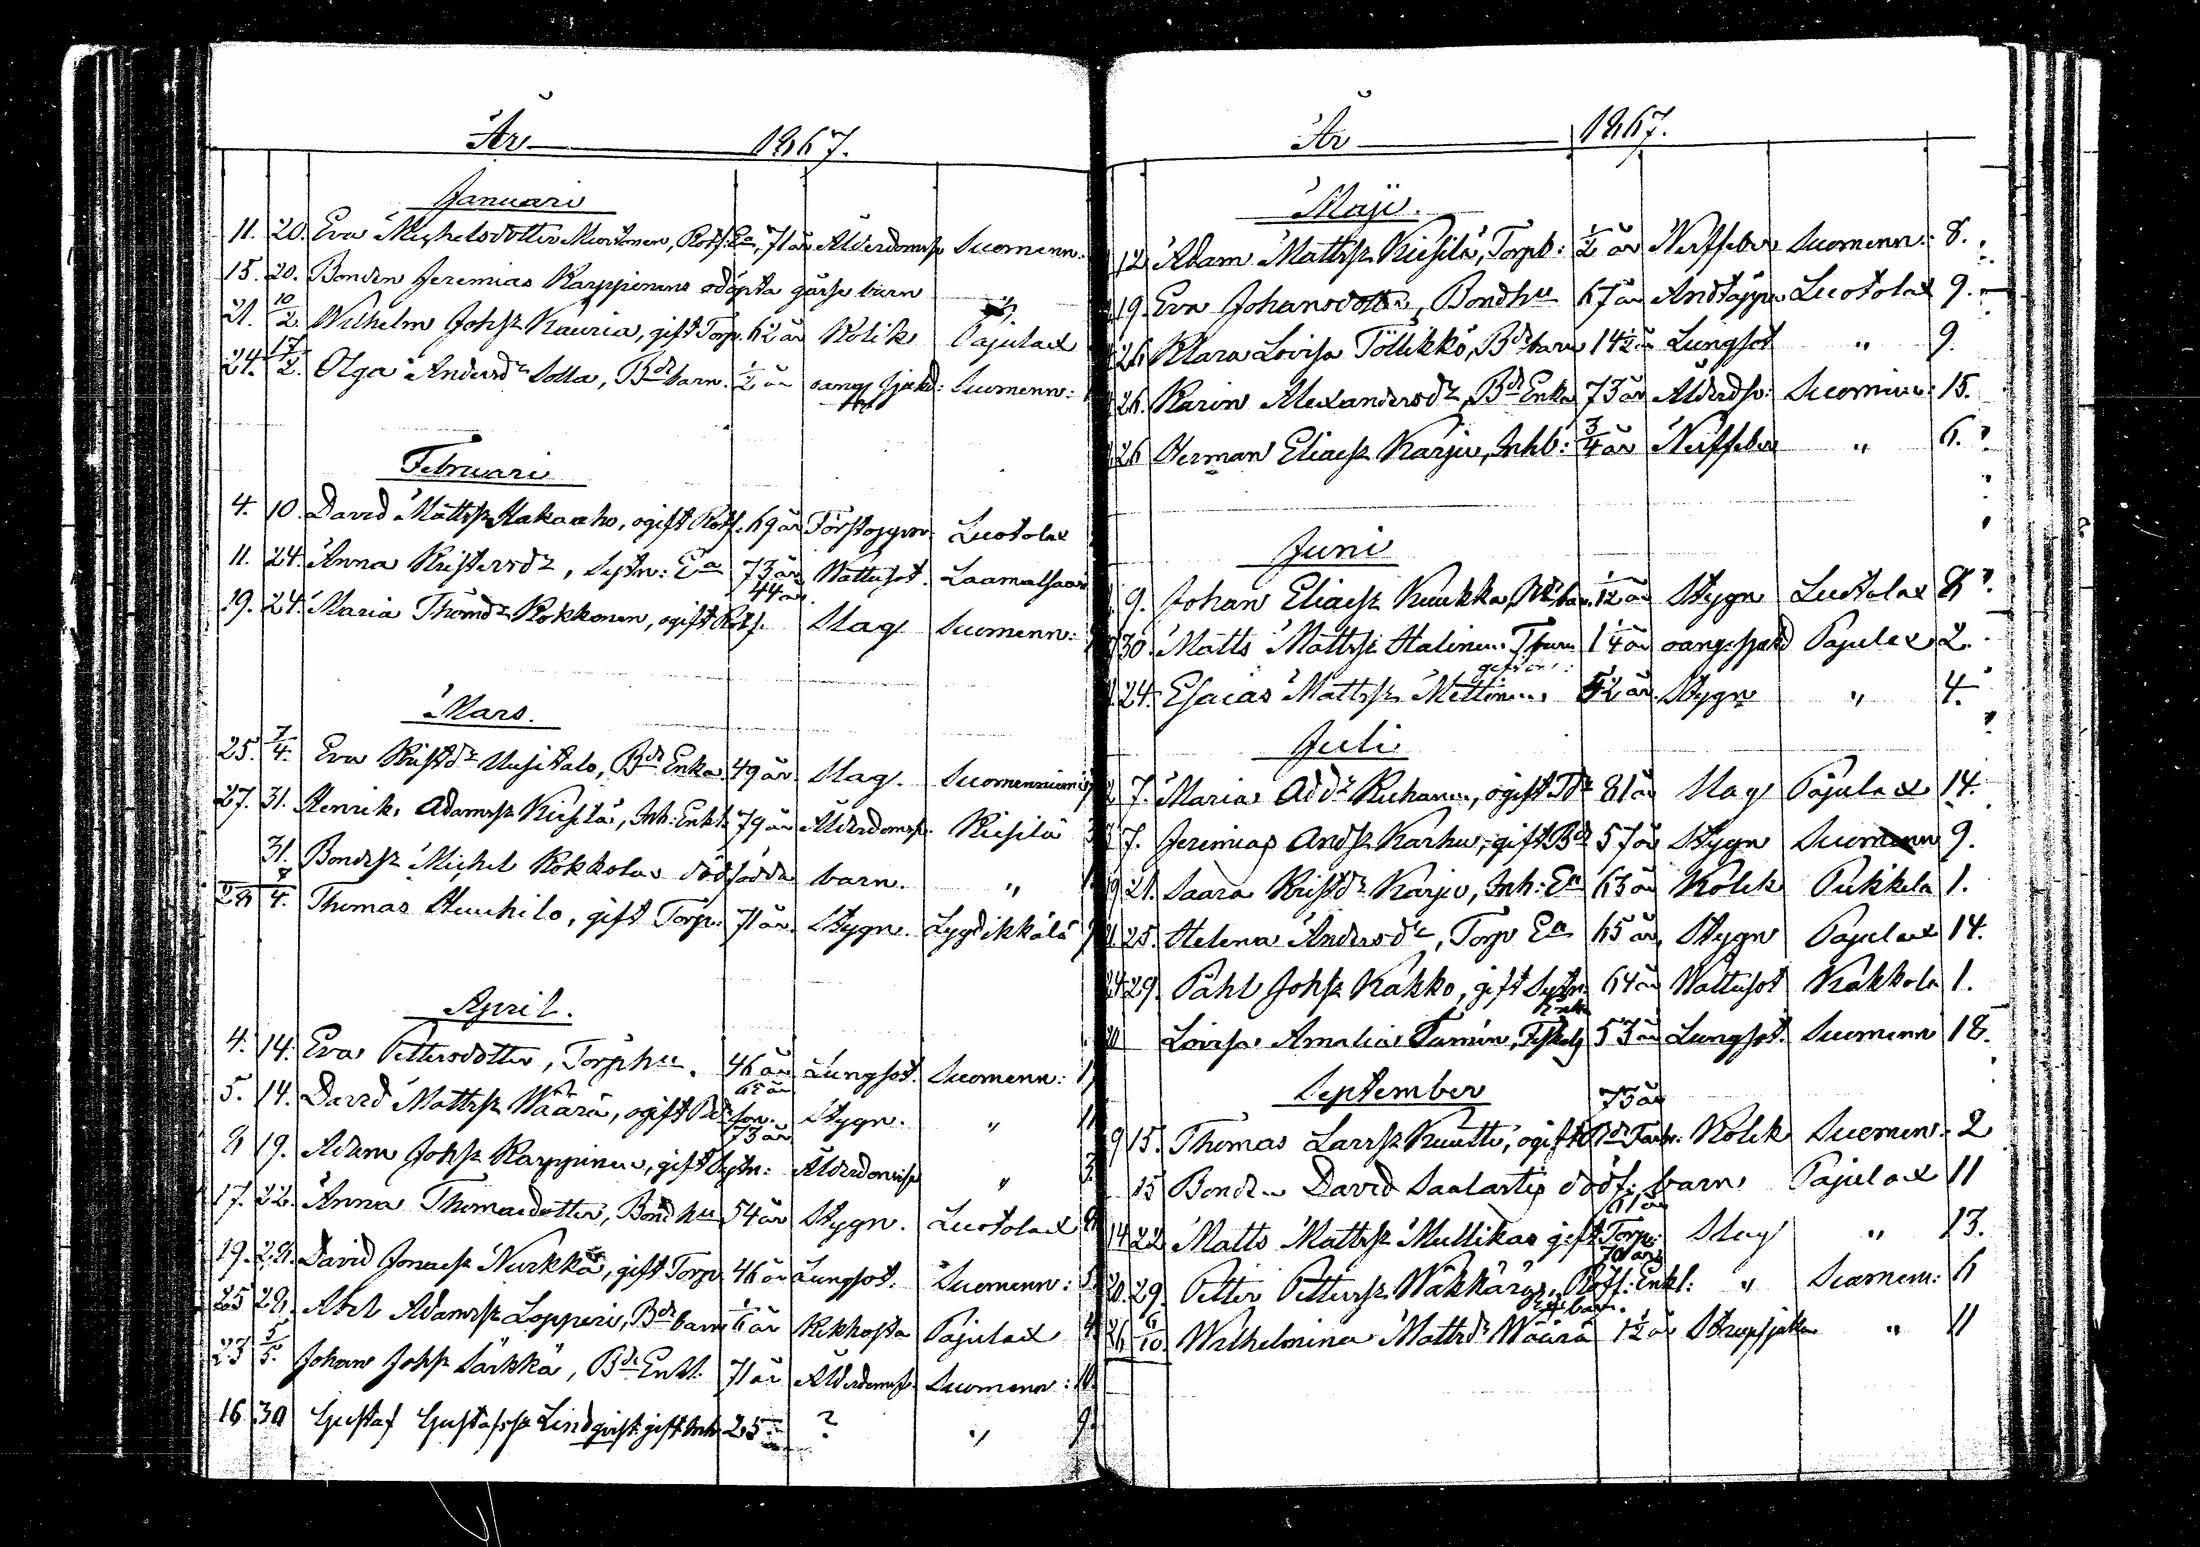 År 1867.
Januari
11. 20. Eva Michelsdotter Mortonen, Rotf. Ea, 71 år Ålderdomsr Suomenn.
15. 20. Bonden Jeremias Karppinens odöpta gosse barn
21. 10/2. Wilhelm Johsr Kauria, gift Torp. 62 år Kolik Pajulax
24. 17/2. Olga Andersdr Solla, Bde barn. 1/2 år oang sjukd: Suomenn:
Februari
4. 10. David Mattsr Hakaaho, ogift Rotf. 69 år Förstoppn Luotolax
11. 24. Anna Kristersdr, Sytn: Ea 73 år Wattusot. Laamalsaari
19. 24. Maria Thomdr Kokkonen, ogift Rotf. 44 år Slag Suomenn:
Mars.
25. 7/4. Eva Kristdr Uusitalo, Bde Enka 49 år Slag. Suomenniemi
27. 31. Henrik Adamsr Kiesilä, Inh: Enkl. 79 år Ålderdomsr. Kiesilä
31. Bondesr Michel Kokkolas dödfödda barn. "
28 8/4. Thomas Huuhilo, gift Torp. 71 år. Stygn. Lyydikkälä
April.
4. 14. Eva Pettersdotter, Torphu. 46 år Lungsot. Suomenn:
5. 14. David Mattsr Wäärä, ogift Bde son. 65 år Stygn. "
8 19. Adam Johsr Karppinen, gift Sytn: 73 år Ålderdomsr "
17. 22. Anna Thomasdotter, Bondhu 54 år Stygn. Luotolax
19. 28. David Jonaesr Nurkka, gift Torp 46 år Lungsot. Suomenn:
25 28. Abel Adamsr Lopperi, Bde barn 1/6 år Kikhosta Pajulax
23 5/5. Johan Johsr Särkkä, Bde Enkl. 71 år Ålderdomsr Suomenn:
16 30 Gustaf Gustafssr Lindqvist gift Inh 25 ? "
År 1867.
Maji.
12. Adam Mattsr Kiesilä, Torpb: 1/2 år Nerffeber Suomenn: 8.
19. Eva Johansdotter, Bondhu 67 år Andtäppa Luotolax 9.
26 Klara Lovisa Töllikkö, Bde barn 14 1/2 år Lungsot " 9.
26. Karin Alexandersdr, Bde Enka 73 år Ålderdsv: Suomenn: 15.
26 Herman Eliaesr Karju, Inhb: 3/4 år Nerffeber " 6.
Juni
9. Johan Eliaesr Kuukka, Bde bar. 1/12 år Stygn Luotolax 8
30. Matts Mattsr Halinen T barn 1/4 år oang. sjukd Pajulax 2.
24. Esaias Mattsr Miettinen, 52 år. Stygn " 4.
Juli
7. Maria Addr Kuhanen, ogift Tdr 81 år Slag Pajulax 14.
7. Jeremias Andsr Karhu, gift Bde 57 år Stygn Suomenn 9.
19 21. Saara Kristdr Karju, Inh: Ea 63 år Kolik Pukkila 1.
21 25. Helena Andersdr, Torp Ea 65 år Stygn Pajulax 14.
24 29. Påhl Johsr Kakko, gift Sytn. 64 år Wattusot Kakkola 1.
Lovisa Amalia Tamén, 53 år Lungsot. Suomenn 18.
September
9 15. Thomas Larsr Kuutti, ogift Bde Farbr: 75 år Kolik Suomenn. 2
15 Bonden David Saalastis dödf: barn Pajulax 11
14 22 Matts Mattsr Mullikas gift Torp: 61 år Slag " 13.
20. 29. Petter Pettersr Wäkkäry, Rotf: Enkl: 70 år " Suomenn: 6
26 6/10. Wilhelmina Mattsdr Wäärä 1 1/2 år Strupsjukan " 11